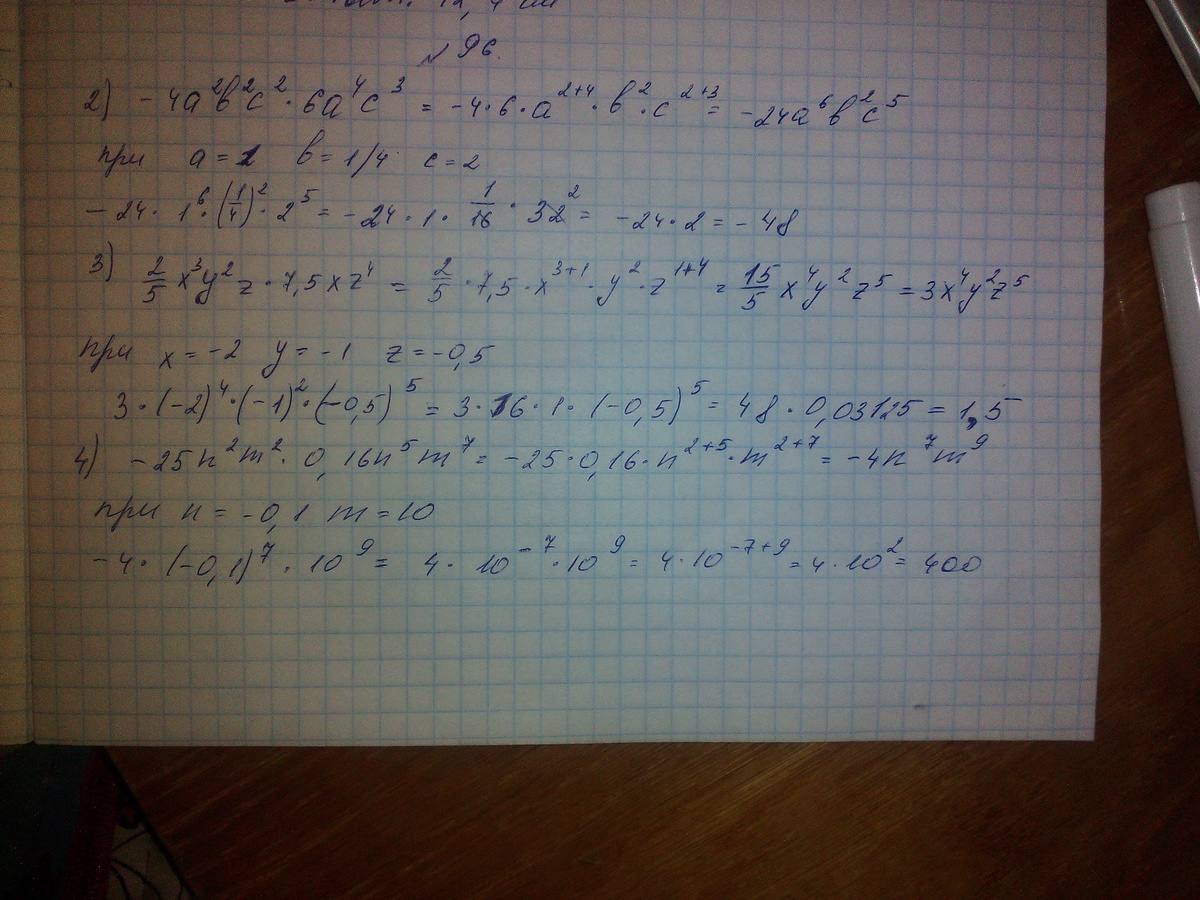 12, 4 см
№ 96.
2) -4a²b²c² · 6a⁴c³ = -4·6·a²⁺⁴·b²·c²⁺³ = -24a⁶b²c⁵
при a=1 b=1/4 c=2
-24·1⁶·(1/4)²·2⁵ = -24·1·1/16·32² = -24·2 = -48
3) 2/5 x³y²z·7,5xz⁴ = 2/5·7,5·x³⁺¹·y²·z¹⁺⁴ = 15/5 x⁴y²z⁵ = 3x⁴y²z⁵
при x=-2 y=-1 z=-0,5
3·(-2)⁴·(-1)²·(-0,5)⁵ = 3·16·1·(-0,5)⁵ = 48·0,03125 = 1,5
4) -25n²m²·0,16n⁵m⁷ = -25·0,16·n²⁺⁵·m²⁺⁷ = -4n⁷m⁹
при n=-0,1 m=10
-4·(-0,1)⁷·10⁹ = 4·10⁻⁷·10⁹ = 4·10⁻⁷⁺⁹ = 4·10² = 400